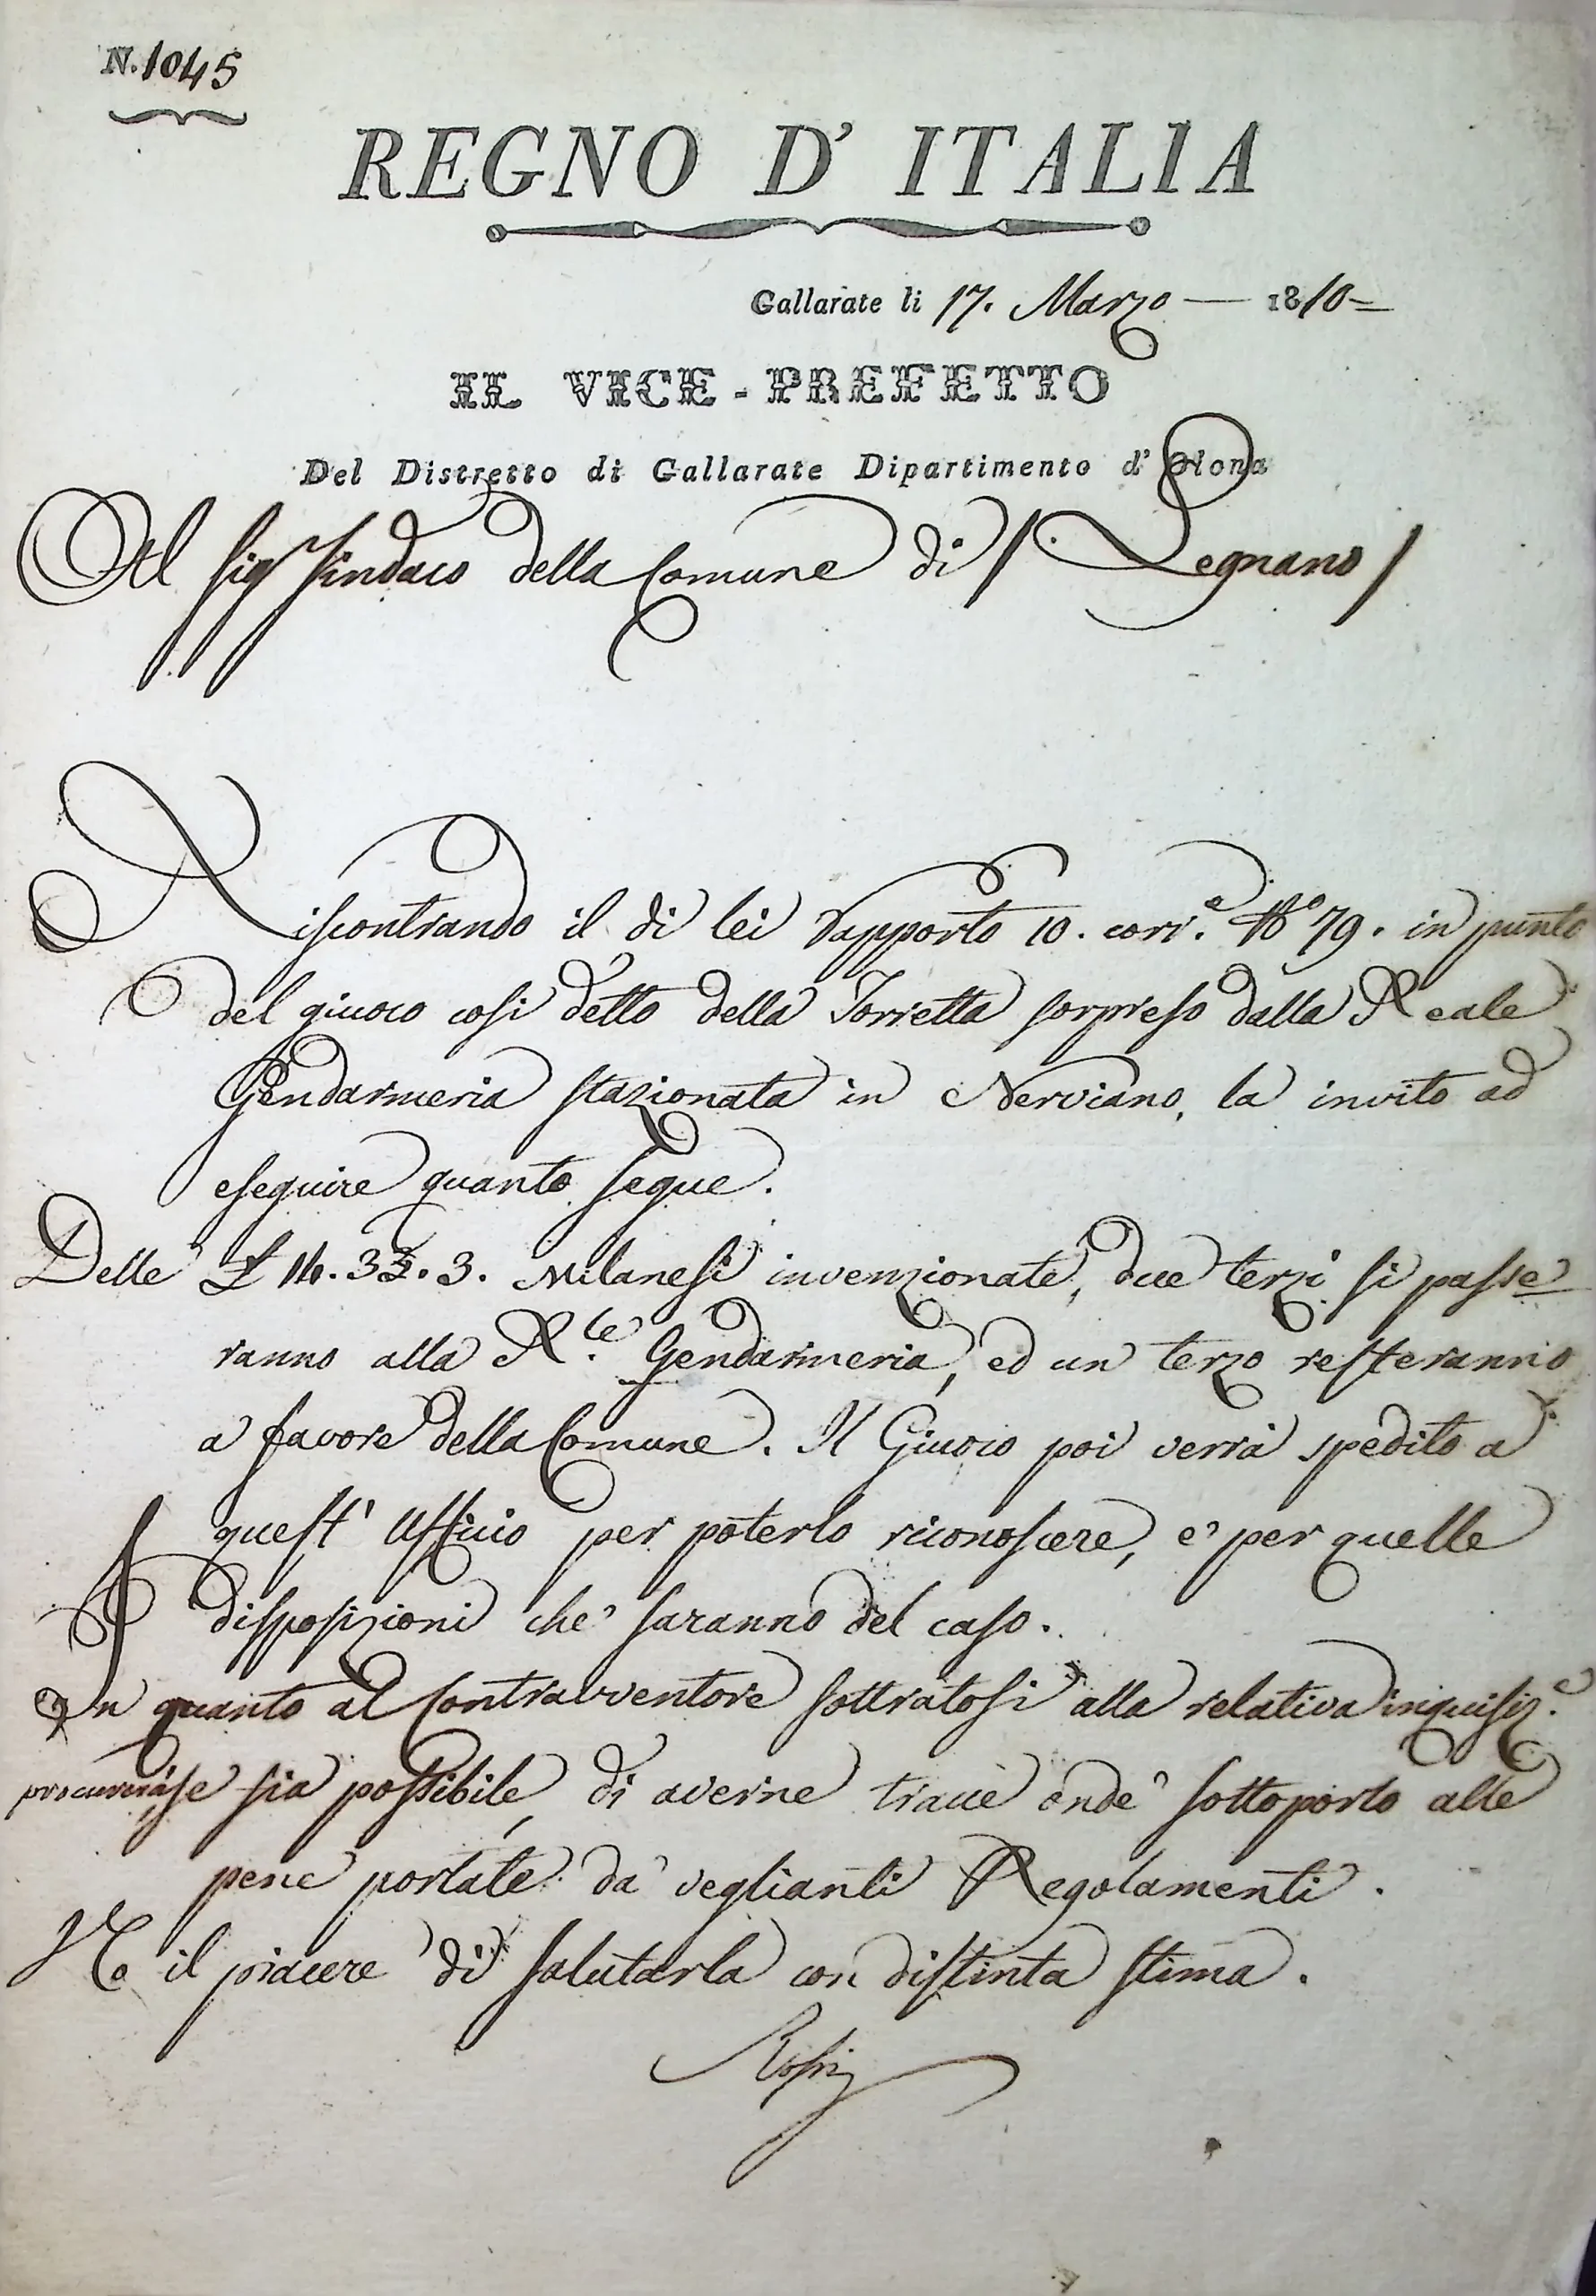 N. 1045
REGNO D' ITALIA
Gallarate li 17. Marzo — 1810=
IL VICE-PREFETTO
Del Distretto di Gallarate Dipartimento d' Olona
Al Sig.r Sindaco della Comune di /. Legnano /
Riscontrando il di lei Rapporto 10. corr.e N.o 79. in punto
del giuoco così detto della Torretta sorpreso dalla Reale
Gendarmeria stazionata in Nerviano, la invito ad
eseguire quanto segue.
Delle £ Milanesi invenzionate, due terzi si passe
ranno alla R.le Gendarmeria, ed un terzo resteranno
a favore della Comune. Il Giuoco poi verrà spedito a
quest' Ufficio per poterlo riconoscere, e per quelle
disposizioni che saranno del caso.
In quanto al Contravventore sottratosi alla relativa inquisiz.e
procurerà, se sia possibile, di averne traccie onde sottoporlo alle
pene portate da veglianti Regolamenti.
Ho il piacere di salutarla con distinta stima.